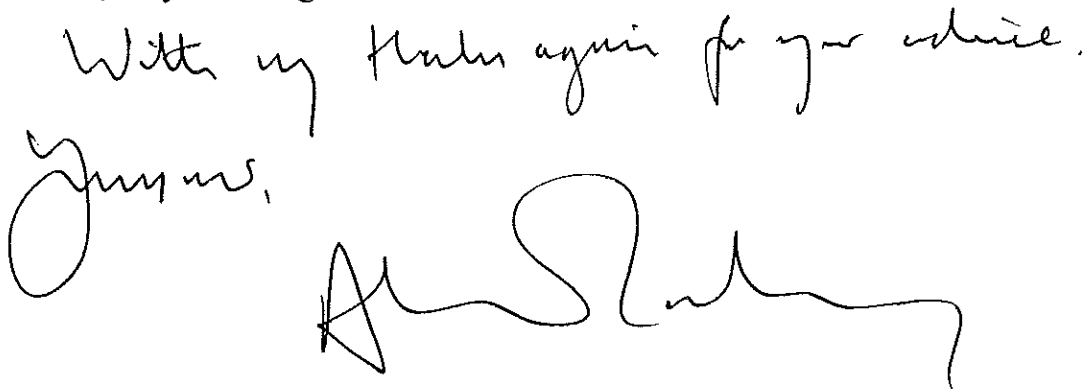 With my thanks again for your advice.
Yours,
Alan